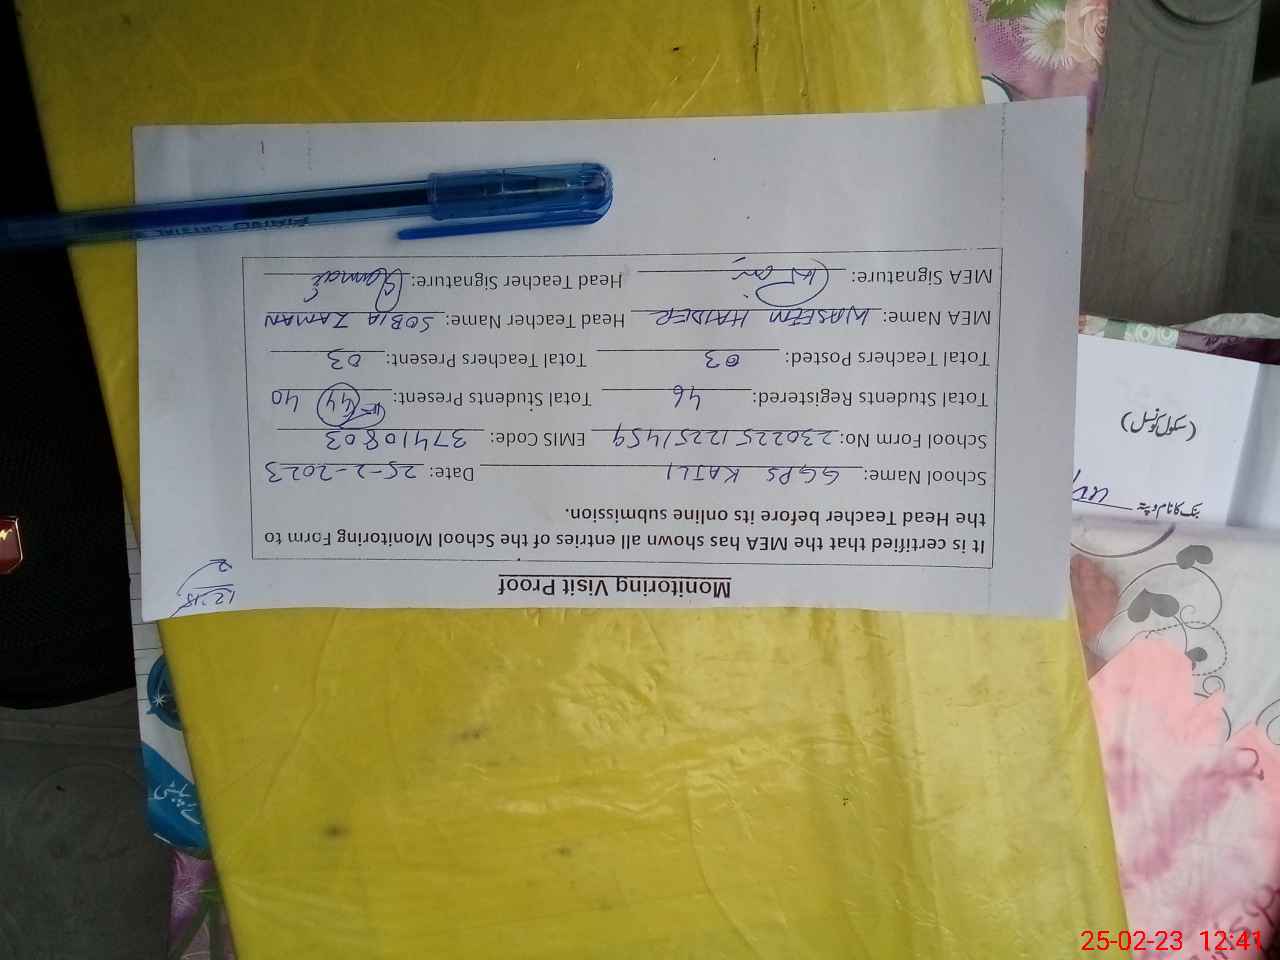 Monitoring Visit Proof
It is certified that the MEA has shown all entries of the School Monitoring Form to
the Head Teacher before its online submission.
School Name: GGPS KAILI Date: 25-2-2023
School Form No: 23022512251459 EMIS Code: 37410803
Total Students Registered: 46 Total Students Present: 44 40
Total Teachers Posted: 03 Total Teachers Present: 03
MEA Name: WASEEM HAIDER Head Teacher Name: SOBIA ZAMAN
MEA Signature: Head Teacher Signature:
PIANO CRYSTAL
(سکول کونسل)
25-02-23 12:41